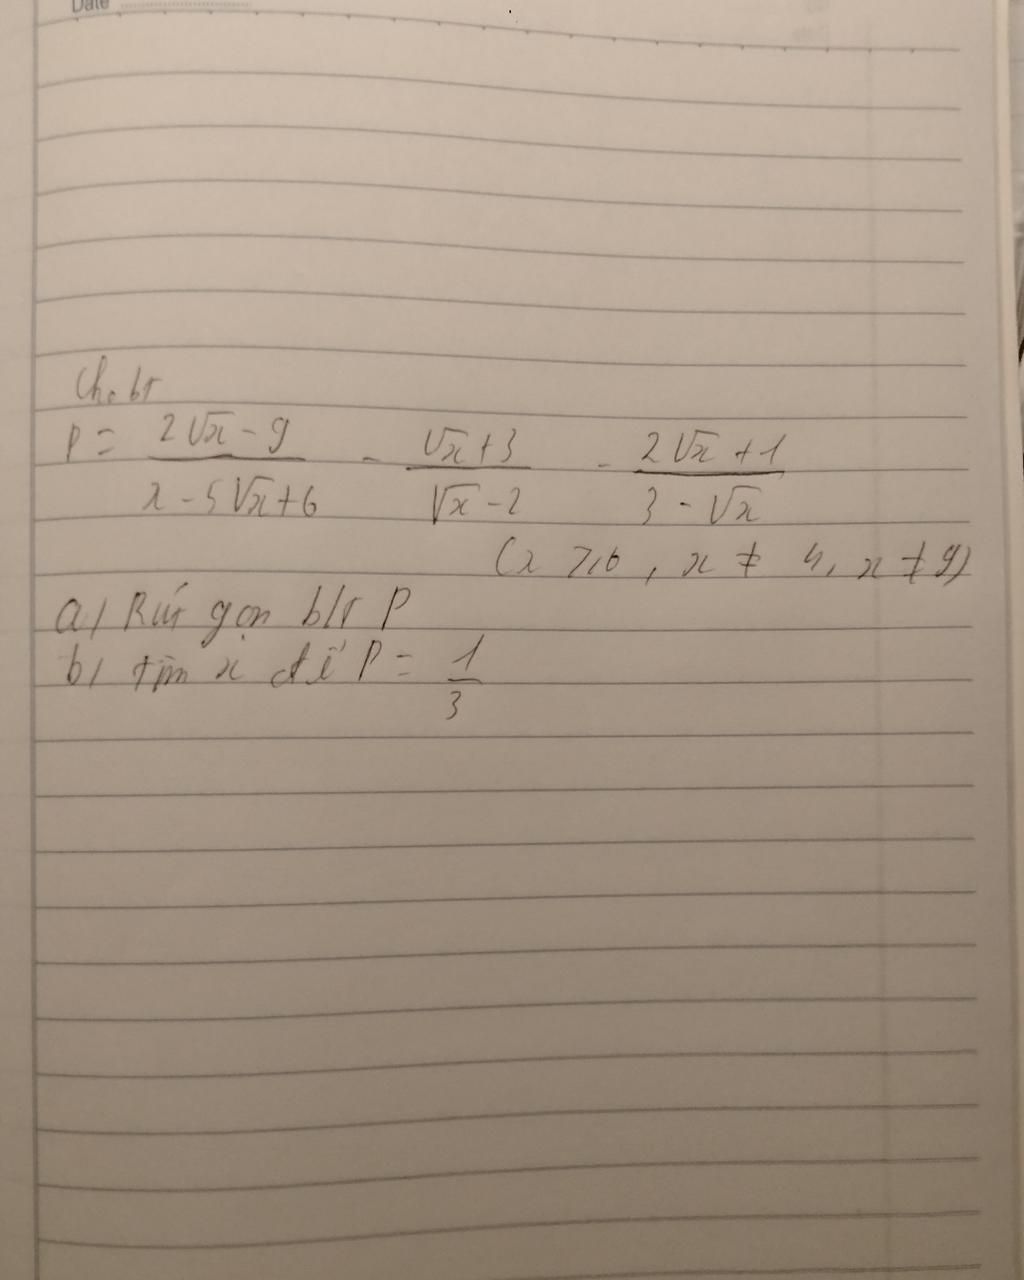 Date
Cho bt
P = \frac{2\sqrt{x} - 9}{x - 5\sqrt{x} + 6} - \frac{\sqrt{x} + 3}{\sqrt{x} - 2} - \frac{2\sqrt{x} + 1}{3 - \sqrt{x}}
(x ≥ 0, x ≠ 4, x ≠ 9)
a) Rút gọn b/t P
b) tìm x để P = \frac{1}{3}